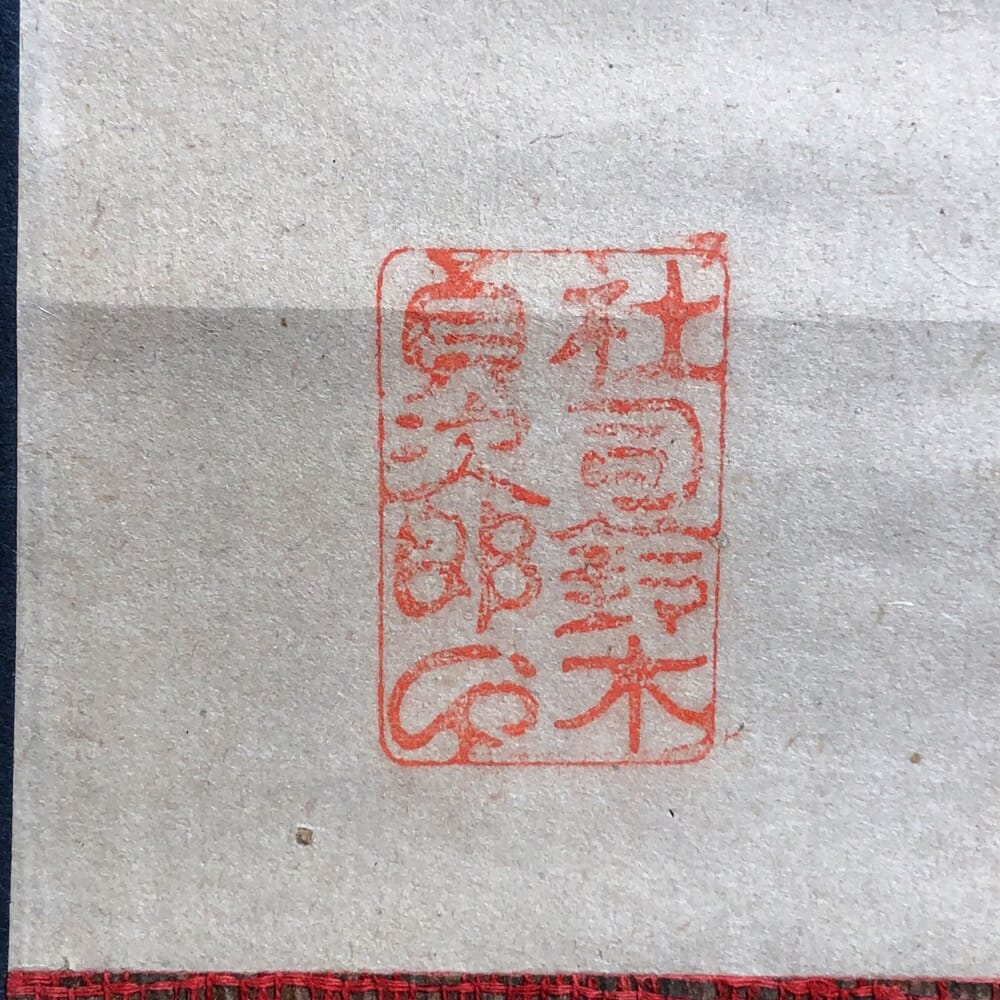 社司鈴木
貞次郎印